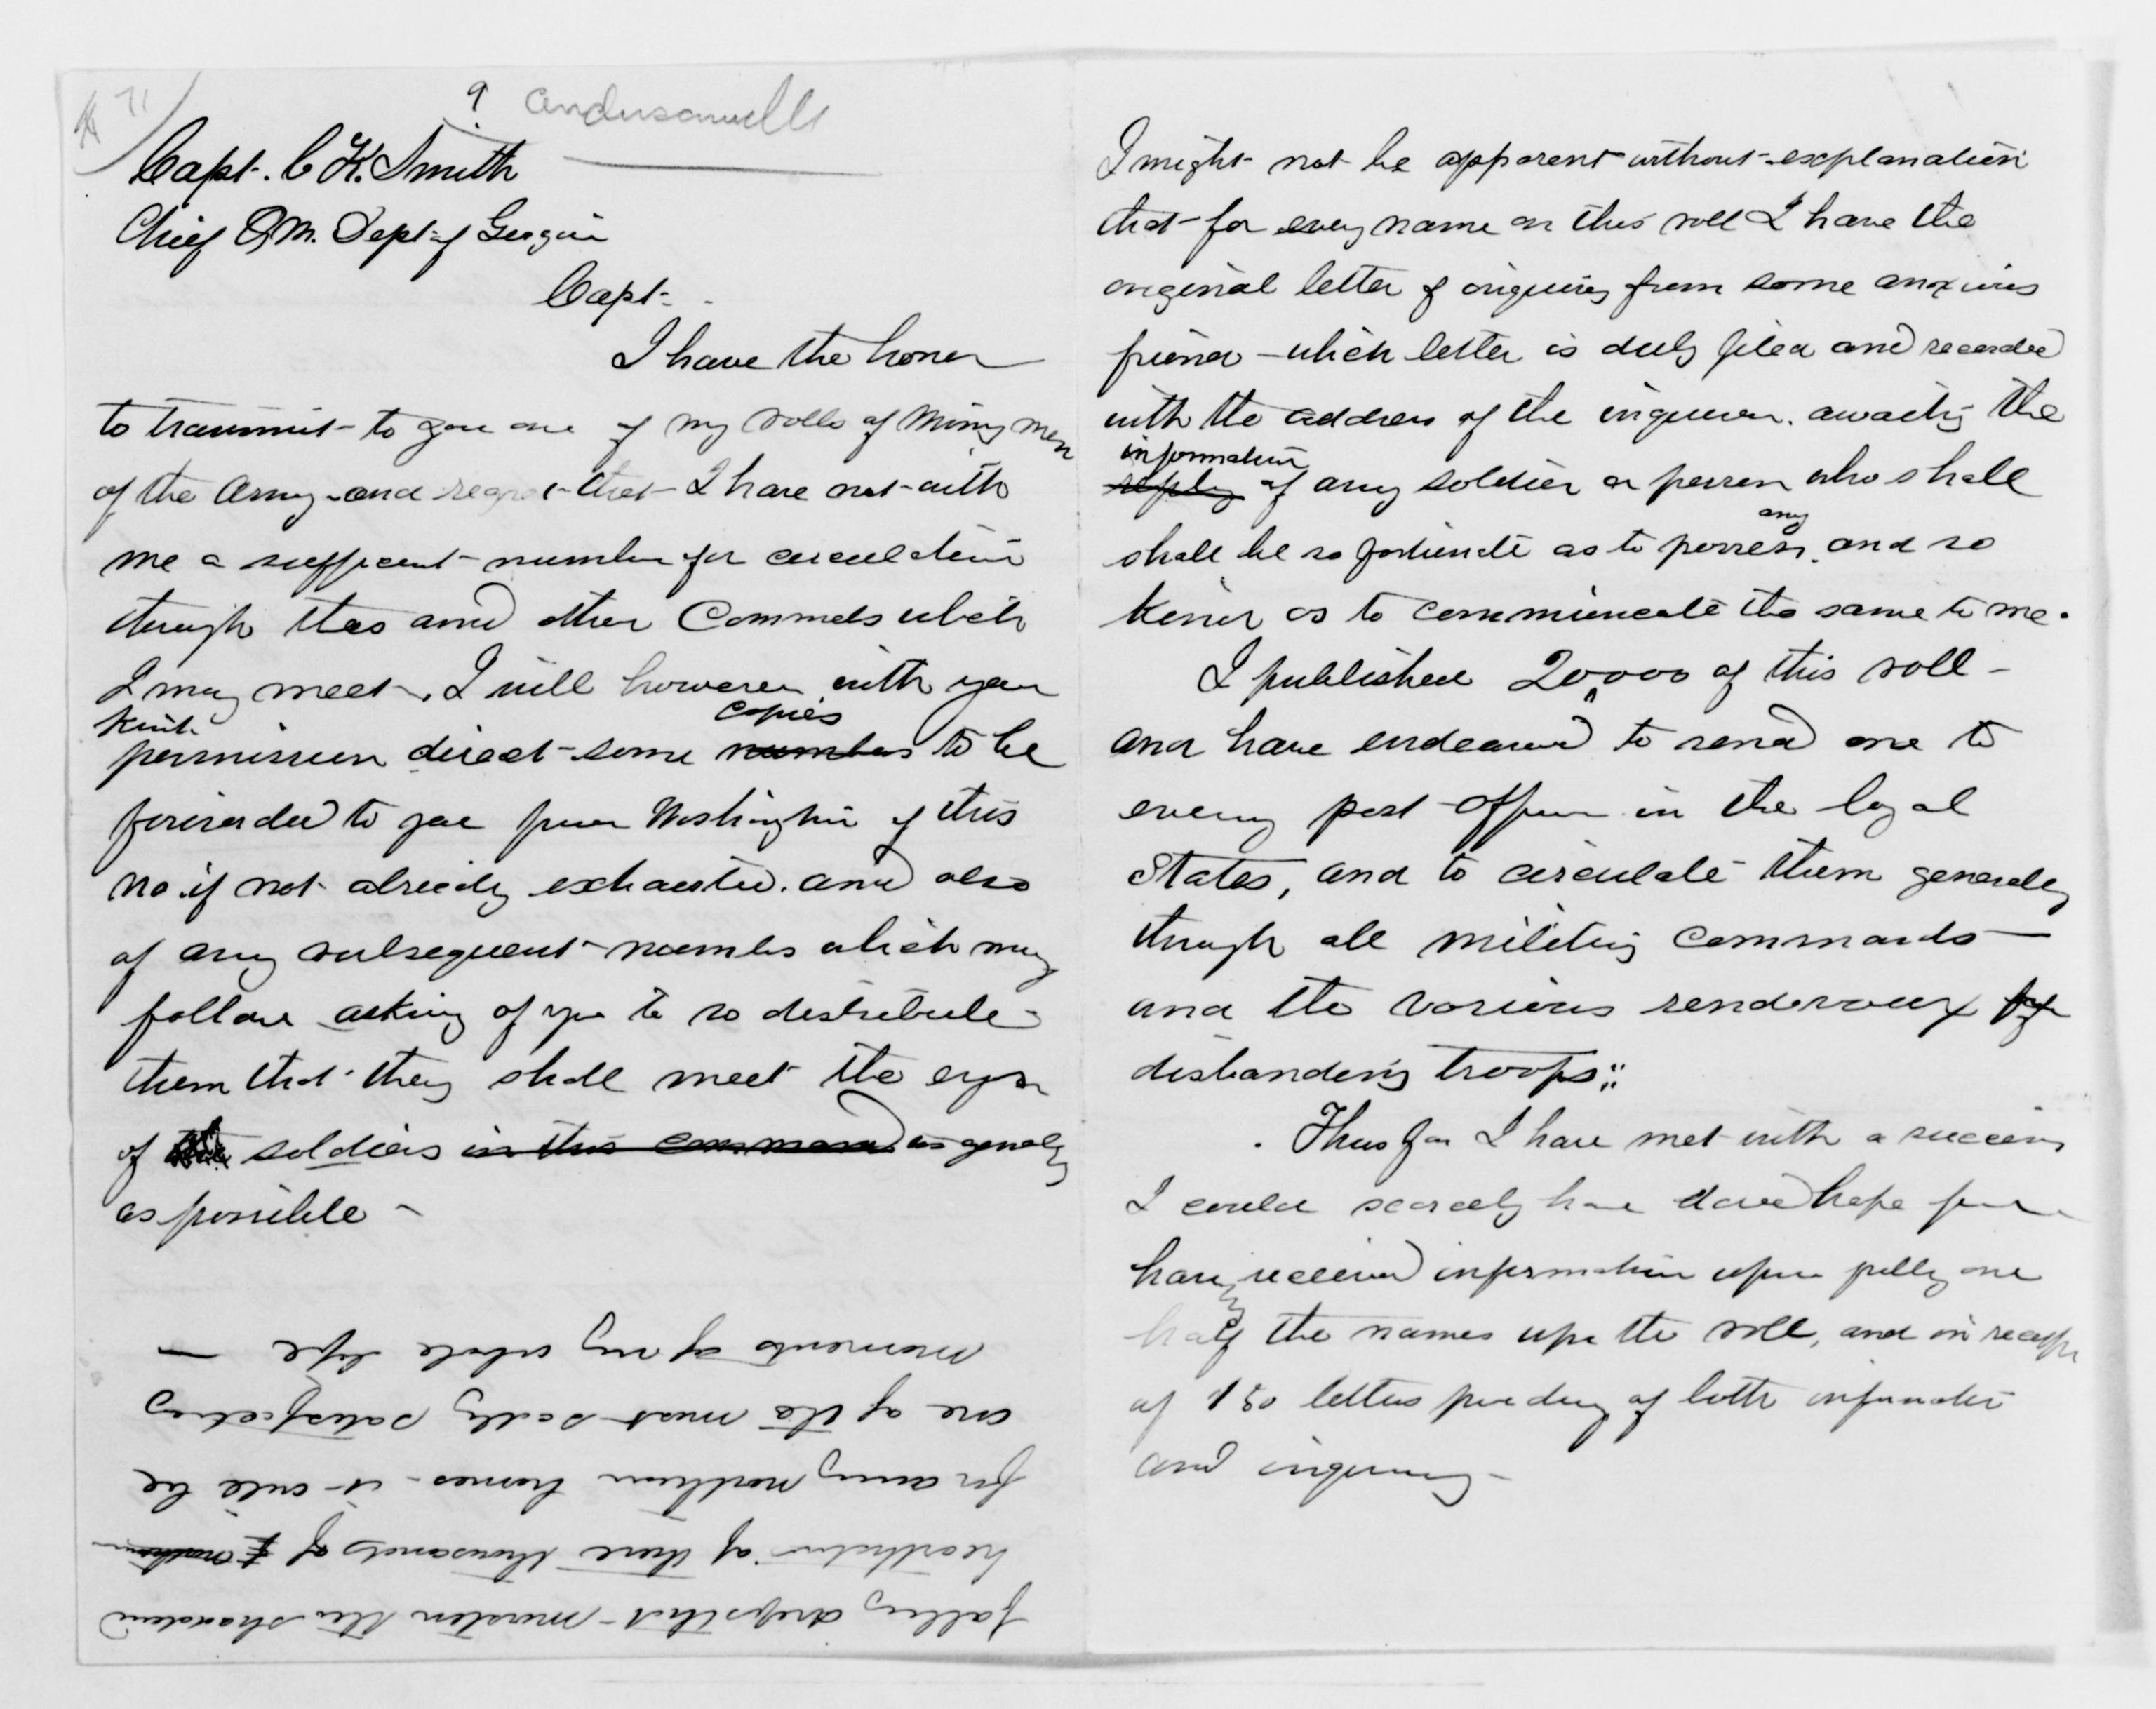 71
? Andersonville
Capt. C K. Smith
Chief Q M. Dept of Georgia
Capt.
I have the honor
to transmit to you one of my rolls of Missing Men
of the Army and regret that I have not with
me a sufficient number for circulation
through this and other Commds which
I may meet, I will however with your
kind
permission direct some numbers copies to be
forwarded to you from Washington of this
no. if not already exhausted. and also
of any subsequent numbers which may
follow asking of you to so distribute
them that they shall meet the eyes
of the soldiers in this command as generally
as possible -
I might not be apparent without explanation
that for every name on this roll I have the
original letter of inquiry from some anxious
friend - which letter is duly filed and recorded
with the address of the inquirer. awaiting the
information
reply of any soldier or person who shall
shall be so fortunate as to possess any and so
kind as to communicate the same to me.
I published 20,000 of this roll -
and have endeavored to send one to
every post office in the loyal
States, and to circulate them generally
through all military commands -
and the various rendezvous for
disbanding troops.
Thus far I have met with a success
I could scarcely have dared hope for
having received information upon fully one
half the names upon the roll, and in receipt
of 150 letters per day of both information
and inquiry -
falling drops that moisten the
hearthstones of these thousands of northern
for any northern homes - it will be
one of the most sadly satisfactory
moments of my whole life -